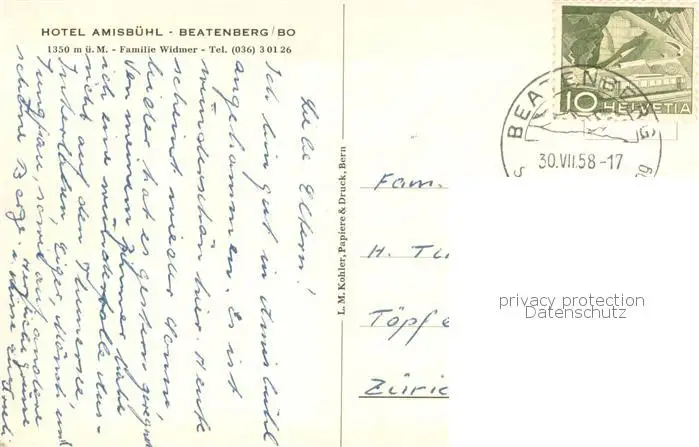 HOTEL AMISBÜHL - BEATENBERG/BO
1350 m ü. M. - Familie Widmer - Tel. (036) 3 01 26
Liebe Eltern!
Ich bin gut in Amisbühl
angekommen. Es ist
wunderschön hier. Heute
scheint wieder Sonne,
leider hat es gestern geregnet
Von meinem Zimmer habe
ich eine wundervolle Aus-
sicht auf den Thunersee,
Interlaken, Eiger, Mönch und
Jungfrau, sowie auf andere
schöne Berge. Herzliche Grüsse
L. M. Kohler, Papiere & Druck, Bern
BEATENBERG
30.VII.58-17
10 HELVETIA
Fam.
H. Tu
Töpfe
Züric
privacy protection
Datenschutz